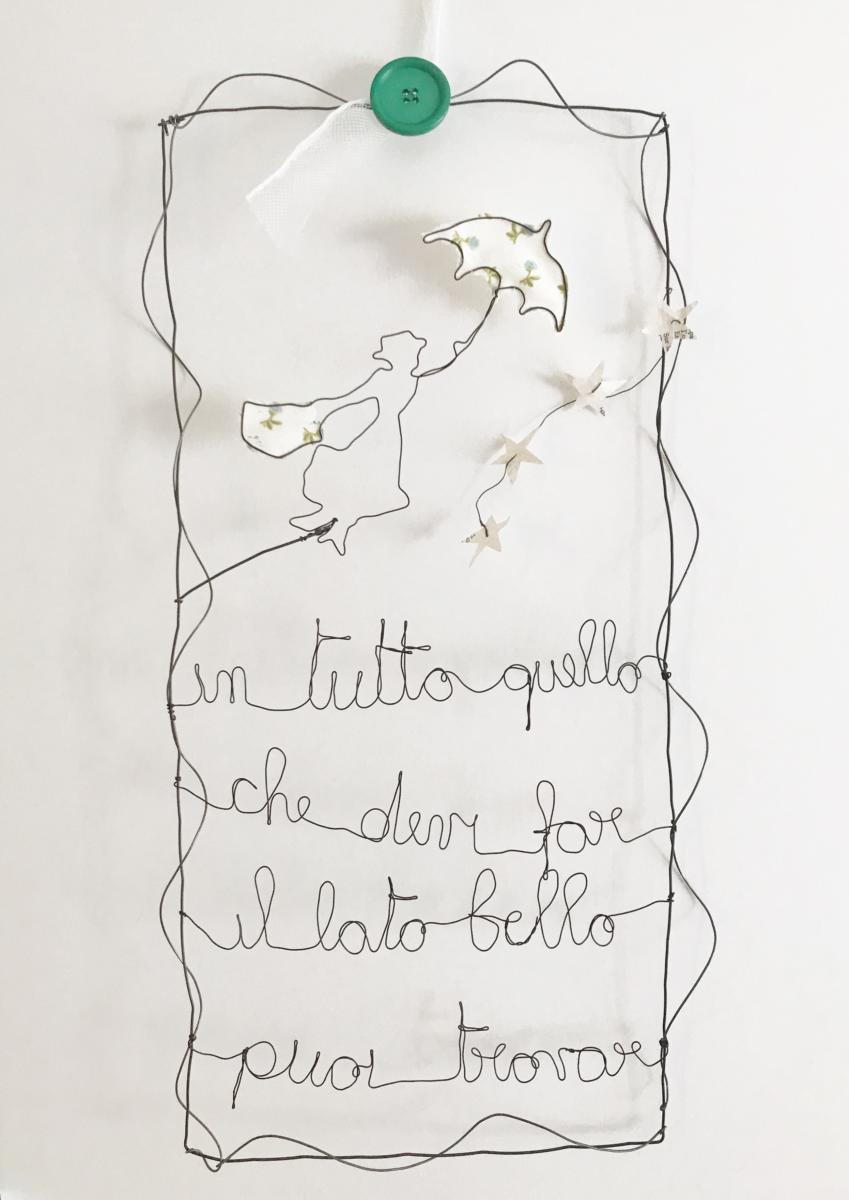 in tutto quello
che devi far
il lato bello
puoi trovar